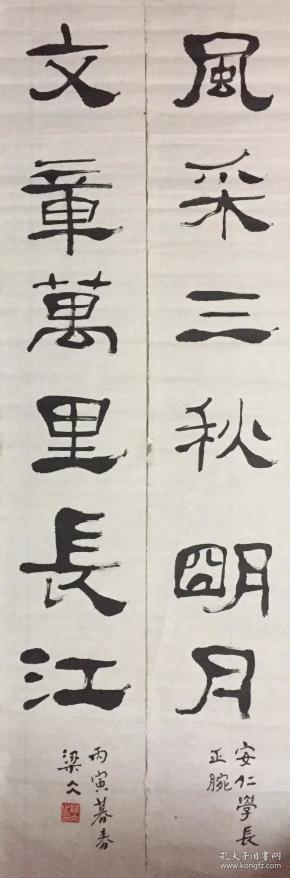 風采三秋朙月
安仁學長
正腕
文章萬里長江
丙寅暮春
梁
孔夫子旧书网